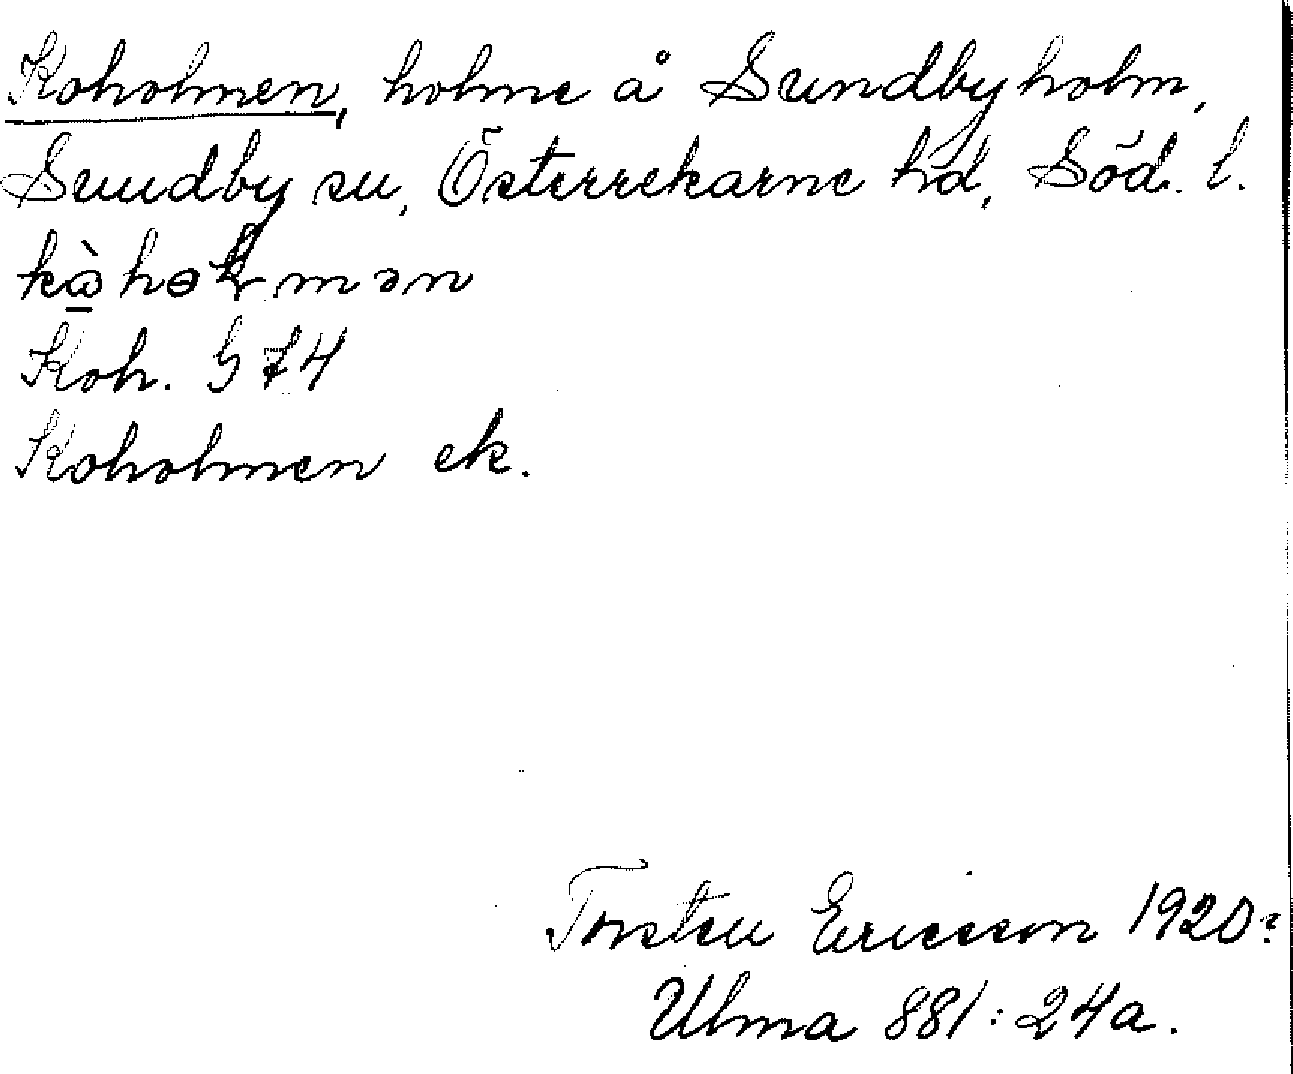 Koholmen, holme å Sundbyholm,
Sundby sn, Österrekarne hd, Söd. l.
Koh. G 74
Koholmen ek.
Torsten Ericsson 1920
Ulma 881:24a.